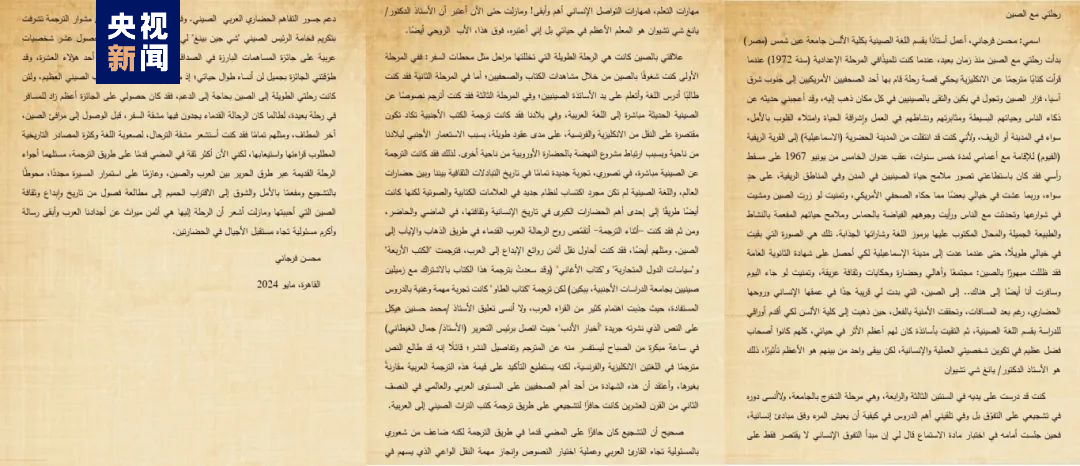 央视
新闻
رحلتي مع الصين
اسمي: محسن فرجاني، أعمل أستاذًا بقسم اللغة الصينية بكلية الألسن جامعة عين شمس (مصر)
بدأت رحلتي مع الصين منذ زمان بعيد، عندما كنت تلميذًا في المرحلة الإعدادية (سنة 1972) عندما
قرأت كتابًا مترجمًا عن الانكليزية يحكي قصة رحلة قام بها أحد الصحفيين الأمريكيين إلى جنوب شرق
آسيا، فزار الصين وتجول في بكين والتقى بالصينيين في كل مكان ذهب إليه، وقد أعجبني حديثه عن
ذكاء الناس وحياتهم البسيطة ومثابرتهم ونشاطهم في العمل وإشراقة الحياة وامتلاء القلوب بالأمل،
سواء في المدينة أو الريف، ولأني كنت قد انتقلت من المدينة الحضرية (الاسماعيلية) إلى القرية الريفية
(الفيوم) للإقامة مع أعمامي لمدة خمس سنوات، عقب عدوان الخامس من يونيو 1967 على مسقط
رأسي فقد كان باستطاعتي تصور ملامح حياة الصينيين في المدن وفي المناطق الريفية، على حدٍ
سواء، وربما عشت في خيالي بعضًا مما حكاه الصحفي الأمريكي، وتمنيت لو زرت الصين ومشيت
في شوارعها وتحدثت مع الناس ورأيت وجوههم الفياضة بالحماس وملامح حياتهم المفعمة بالنشاط
والطبيعة الجميلة والمحال المكتوب عليها برموز اللغة وشاراتها الجذابة. تلك هي الصورة التي بقيت
في خيالي طويلًا، حتى عندما عدت إلى مدينة الإسماعيلية لكي أحصل على شهادة الثانوية العامة
فقد ظللت مبهورًا بالصين: مجتمعًا وأهالي وحضارة وحكايات وثقافة عريقة، وتمنيت لو جاء اليوم
وسافرت أنا أيضًا إلى هناك.. إلى الصين، التي بدت لي قريبة جدًا في عمقها الإنساني وروحها
الحضاري، رغم بعد المسافات، وتحققت الأمنية بالفعل، حين ذهبت إلى كلية الألسن لكي أقدم أوراقي
للدراسة بقسم اللغة الصينية، ثم التقيت بأساتذة كان لهم أعظم الأثر في حياتي، كلهم كانوا أصحاب
فضل عظيم في تكوين شخصيتي العملية والإنسانية، لكن يبقى واحد من بينهم هو الأعظم تأثيرًا، ذلك
هو الأستاذ الدكتور/ يانغ شي تشيوان
كنت قد درست على يديه في السنتين الثالثة والرابعة، وهي مرحلة التخرج بالجامعة، ولاأنسى دوره
في تشجيعي على التفوّق بل وفي تلقيني أهم الدروس في كيفية أن يعيش المرء وفق مبادئ إنسانية،
فحين جلست أمامه في اختبار مادة الاستماع قال لي إن مبدأ التفوق الإنساني لا يقتصر فقط على
مهارات التعلم، فمهارات التواصل الإنساني أهم وأبقى! ومازلت حتى الآن أعتبر أن الأستاذ الدكتور/
يانغ شي تشيوان هو المعلم الأعظم في حياتي بل إني أعتبره، فوق هذا، الأب الروحي أيضًا.
علاقتي بالصين كانت هي الرحلة الطويلة التي تخللتها مراحل مثل محطات السفر: ففي المرحلة
الأولى كنت شغوفًا بالصين من خلال مشاهدات الكتاب والصحفيين؛ أما في المرحلة الثانية فقد كنت
طالبًا أدرس اللغة وأتعلم على يد الأساتذة الصينيين؛ وفي المرحلة الثالثة فقد كنت أترجم نصوصًا عن
الصينية الحديثة مباشرة إلى اللغة العربية، وذلك في بلادنا فقد كانت ترجمة الكتب الأجنبية تكاد تكون
مقتصرة على النقل من الانكليزية والفرنسية، على مدى عقود طويلة، بسبب الاستعمار الأجنبي لبلادنا
من ناحية وبسبب ارتباط مشروع النهضة بالحضارة الأوروبية من ناحية أخرى. لذلك فقد كانت الترجمة
عن الصينية مباشرة، في تصوري، تجربة جديدة تمامًا في تاريخ التبادلات الثقافية بيننا وبين حضارات
العالم، واللغة الصينية لم تكن مجرد اكتساب لنظام جديد في العلامات الكتابية والصوتية لكنها كانت
أيضًا طريقًا إلى إحدى أهم الحضارات الكبرى في تاريخ الإنسانية وثقافتها، في الماضي والحاضر،
ومن ثم فقد كنت –أثناء الترجمة– أتقمّص روح الرحالة العرب القدماء في طريق الذهاب والإياب إلى
الصين. ومثلهم أيضًا، فقد كنت أحاول نقل أثمن روائع الإبداع إلى العرب، فترجمت "الكتب الأربعة"
و"سياسات الدول المتحاربة" و"كتاب الأغاني" (وقد سعدت بترجمة هذا الكتاب بالاشتراك مع زميلين
صينيين بجامعة الدراسات الأجنبية، ببكين) لكن ترجمة "كتاب الطاو" كانت تجربة مهمة وغنية بالدروس
المستفادة، حيث جذبت اهتمام كثير من القراء العرب، ولا أنسى تعليق الأستاذ /محمد حسنين هيكل
على النص الذي نشرته جريدة "أخبار الأدب" حيث اتصل برئيس التحرير (الأستاذ/ جمال الغيطاني)
في ساعة مبكرة من الصباح ليستفسر منه عن المترجم وتفاصيل النشر؛ قائلًا إنه قد طالع النص
مترجمًا في اللغتين الانكليزية والفرنسية، لكنه يستطيع التأكيد على قيمة هذه الترجمة العربية مقارنة
بغيرها، وأعتقد أن هذه الشهادة من أحد أهم الصحفيين على المستوى العربي والعالمي في النصف
الثاني من القرن العشرين كانت حافزًا لتشجيعي على طريق ترجمة كتب التراث الصيني إلى العربية.
صحيح أن التشجيع كان حافزًا على المضي قدما في طريق الترجمة لكنه ضاعف من شعوري
بالمسئولية تجاه القارئ العربي وعملية اختيار النصوص وانجاز مهمة النقل الواعي الذي يسهم في
دعم جسور التفاهم الحضاري العربي الصيني. وقد مشوار الترجمة تشرفت
بتكريم فخامة الرئيس الصيني "شي جين بينغ" لي حصول عشر شخصيات
عربية على جائزة المساهمات البارزة في الصداقة أحد هؤلاء العشرة، وقد
طوّقتني الجائزة بجميل لن أنساه طوال حياتي؛ إذ الصيني العظيم، ولئن
كانت رحلتي الطويلة إلى الصين بحاجة إلى الدعم، فقد كان حصولي على الجائزة أعظم زاد للمسافر
في رحلة بعيدة، لطالما كان الرحالة القدماء يجدون فيها مشقة السفر، قبل الوصول إلى مرافئ الصين،
آخر المطاف، ومثلهم تمامًا فقد كنت أستشعر مشقة الترحال، لصعوبة اللغة وكثرة المصادر التاريخية
المطلوب قراءتها واستيعابها، لكني الآن أكثر ثقة في المضي قدمًا على طريق الترجمة، مستلهما أجواء
الرحلة القديمة عبر طرق الحرير بين العرب والصين، وعازمًا على استمرار المسيرة مجددًا، محوطًا
بالتشجيع ومفعمًا بالأمل والشوق إلى الاقتراب الحميم إلى مطالعة فصول من تاريخ وإبداع وثقافة
الصين التي أحببتها ومازلت أشعر أن الرحلة إليها هي أثمن ميراث عن أجدادنا العرب وأبقى رسالة
وأكرم مسئولية تجاه مستقبل الأجيال في الحضارتين.
محسن فرجاني
القاهرة، مايو 2024